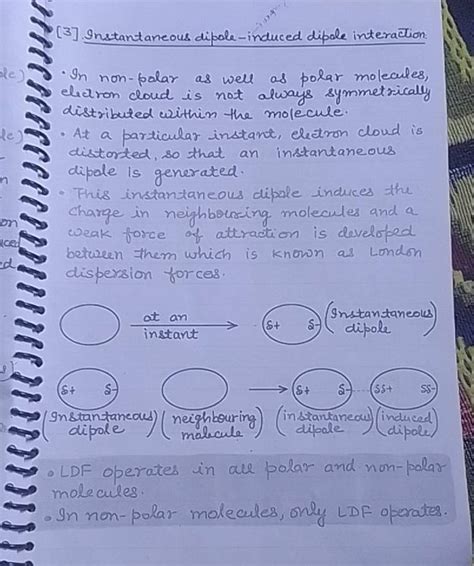 [3] Instantaneous dipole-induced dipole interaction
• In non-polar as well as polar molecules,
electron cloud is not always symmetrically
distributed within the molecule.
• At a particular instant, electron cloud is
distorted, so that an instantaneous
dipole is generated.
• This instantaneous dipole induces the
charge in neighbouring molecules and a
weak force of attraction is developed
between them which is known as London
dispersion forces.
at an
instant
δ+ δ- (Instantaneous
dipole)
δ+ δ- δ+ δ- δδ+ δδ-
(Instantaneous dipole) (neighbouring molecule) (instantaneous dipole) (induced dipole)
• LDF operates in all polar and non-polar
molecules.
• In non-polar molecules, only LDF operates.